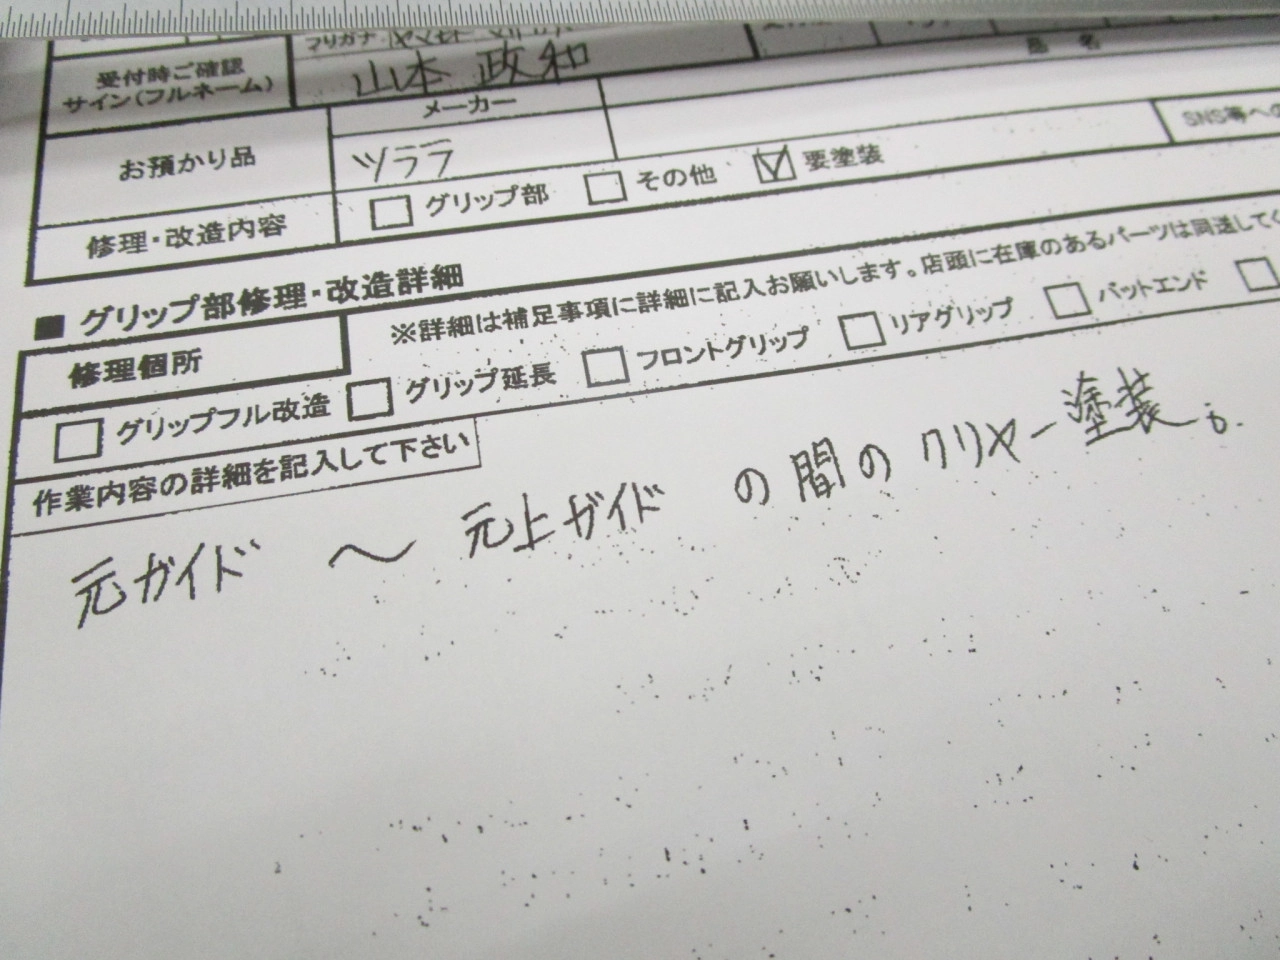 フリガナ
受付時ご確認
サイン(フルネーム)
山本 政和
お預かり品
メーカー
ツララ
品 名
修理・改造内容
グリップ部
その他
要塗装
SNS等への
■ グリップ部修理・改造詳細
修理個所
※詳細は補足事項に詳細に記入お願いします。店頭に在庫のあるパーツは同送してく
グリップフル改造
グリップ延長
フロントグリップ
リアグリップ
バットエンド
作業内容の詳細を記入して下さい
元ガイド 〜 元上ガイド の間の クリヤー塗装。